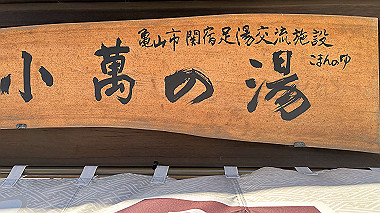 亀山市関宿足湯交流施設
小萬の湯
こまんのゆ